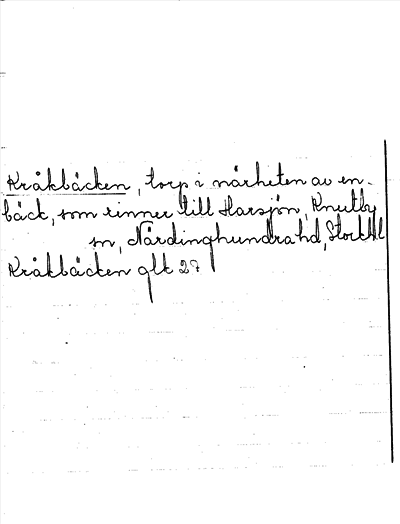 Kråkbäcken, torp i närheten av en
bäck, som rinner till Harsjön, Knutby
sn, Närdinghundra hd, Stockh. l
Kråkbäcken glk 27